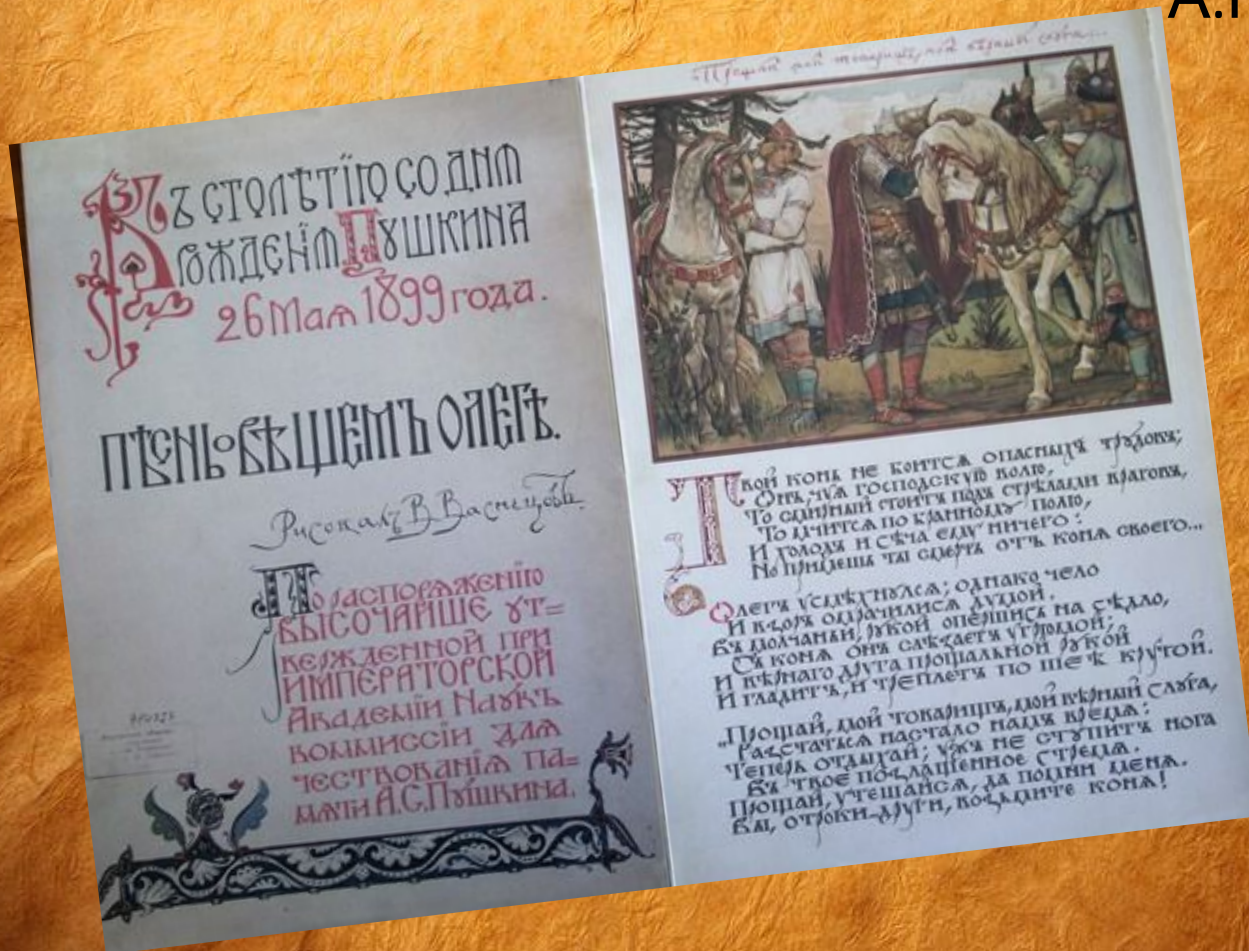 Къ столѣтію со дня
рожденія Пушкина
26 Мая 1899 года.
Пѣснь о Вѣщемъ Олегѣ.
Рисовалъ В. Васнецовъ.
По распоряженію
ВЫСОЧАЙШЕ ут=
вержденной при
ИМПЕРАТОРСКОЙ
Академіи Наукъ
коммиссіи для
чествованія па=
мяти А.С.Пушкина.
„Прощай мой товарищъ, мой вѣрный слуга...
Твой конь не боится опасныхъ трудовъ;
Онъ, чуя господскую волю,
То смирный стоитъ подъ стрѣлами враговъ,
То мчится по бранному полю,
И холодъ и сѣча ему ничего:
Но пріимешь ты смерть отъ коня своего...
Олегъ усмѣхнулся; однако чело
И взоръ омрачилися думой.
Въ молчаньи, рукой опершись на сѣдло,
Съ коня онъ слѣзаетъ угрюмой;
И вѣрнаго друга прощальной рукой
И гладитъ, и треплетъ по шеѣ крутой.
„Прощай, мой товарищъ, мой вѣрный слуга,
Разстаться настало намъ время:
Теперь отдыхай; ужъ не ступитъ нога
Въ твое позлащенное стремя.
Прощай, утешайся, да помни меня.
Вы, отроки-други, возьмите коня!